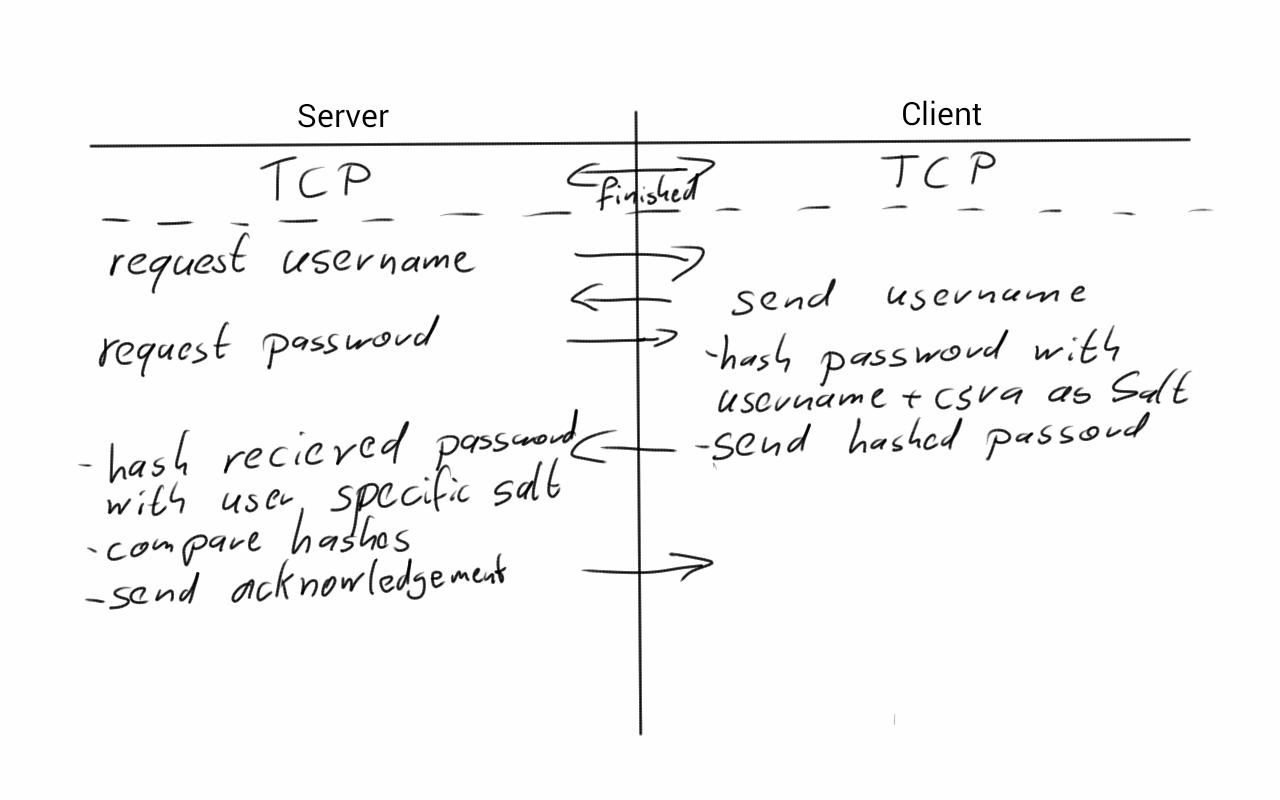 Server
Client
TCP
finished
TCP
request username
send username
request password
-hash password with
username + csra as Salt
-send hashed passord
- hash recieved password
with user specific salt
- compare hashes
- send acknowledgement